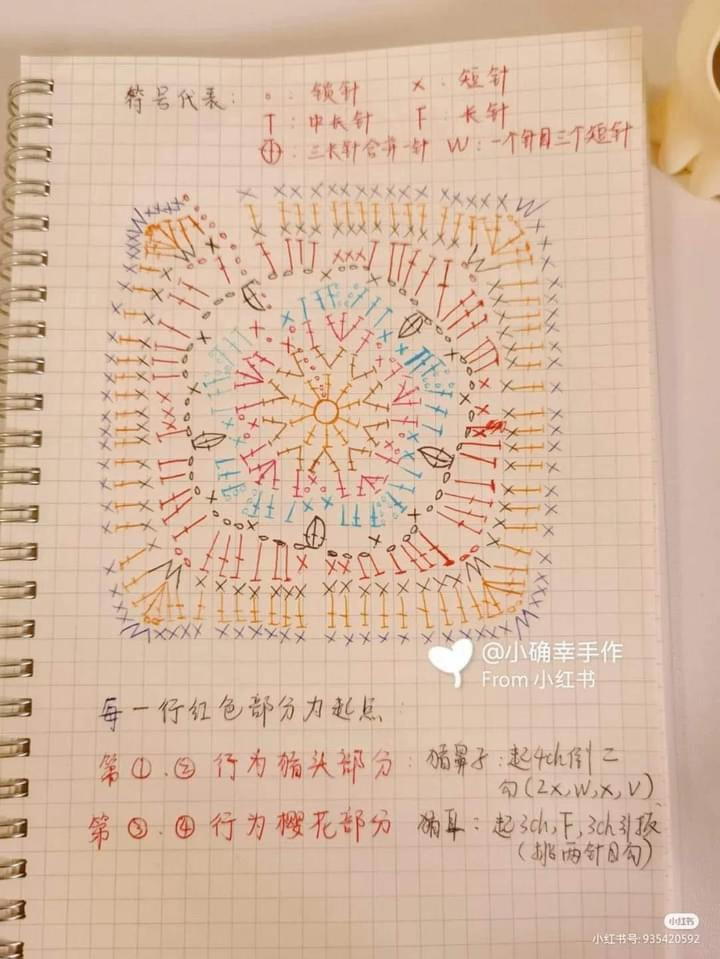 符号代表: o: 锁针 x. 短针
T: 中长针 F: 长针
三长针合并一针 W: 一个针目三个短针
@小确幸手作
From 小红书
每一行红色部分为起点.
第①.②行为猫头部分: 猫鼻子:起4ch倒二
勾(2x,W,x,V)
第③.④行为樱花部分 猫耳: 起3ch,F,3ch引拔
(挑两针目勾)
小红书
小红书号: 935420592